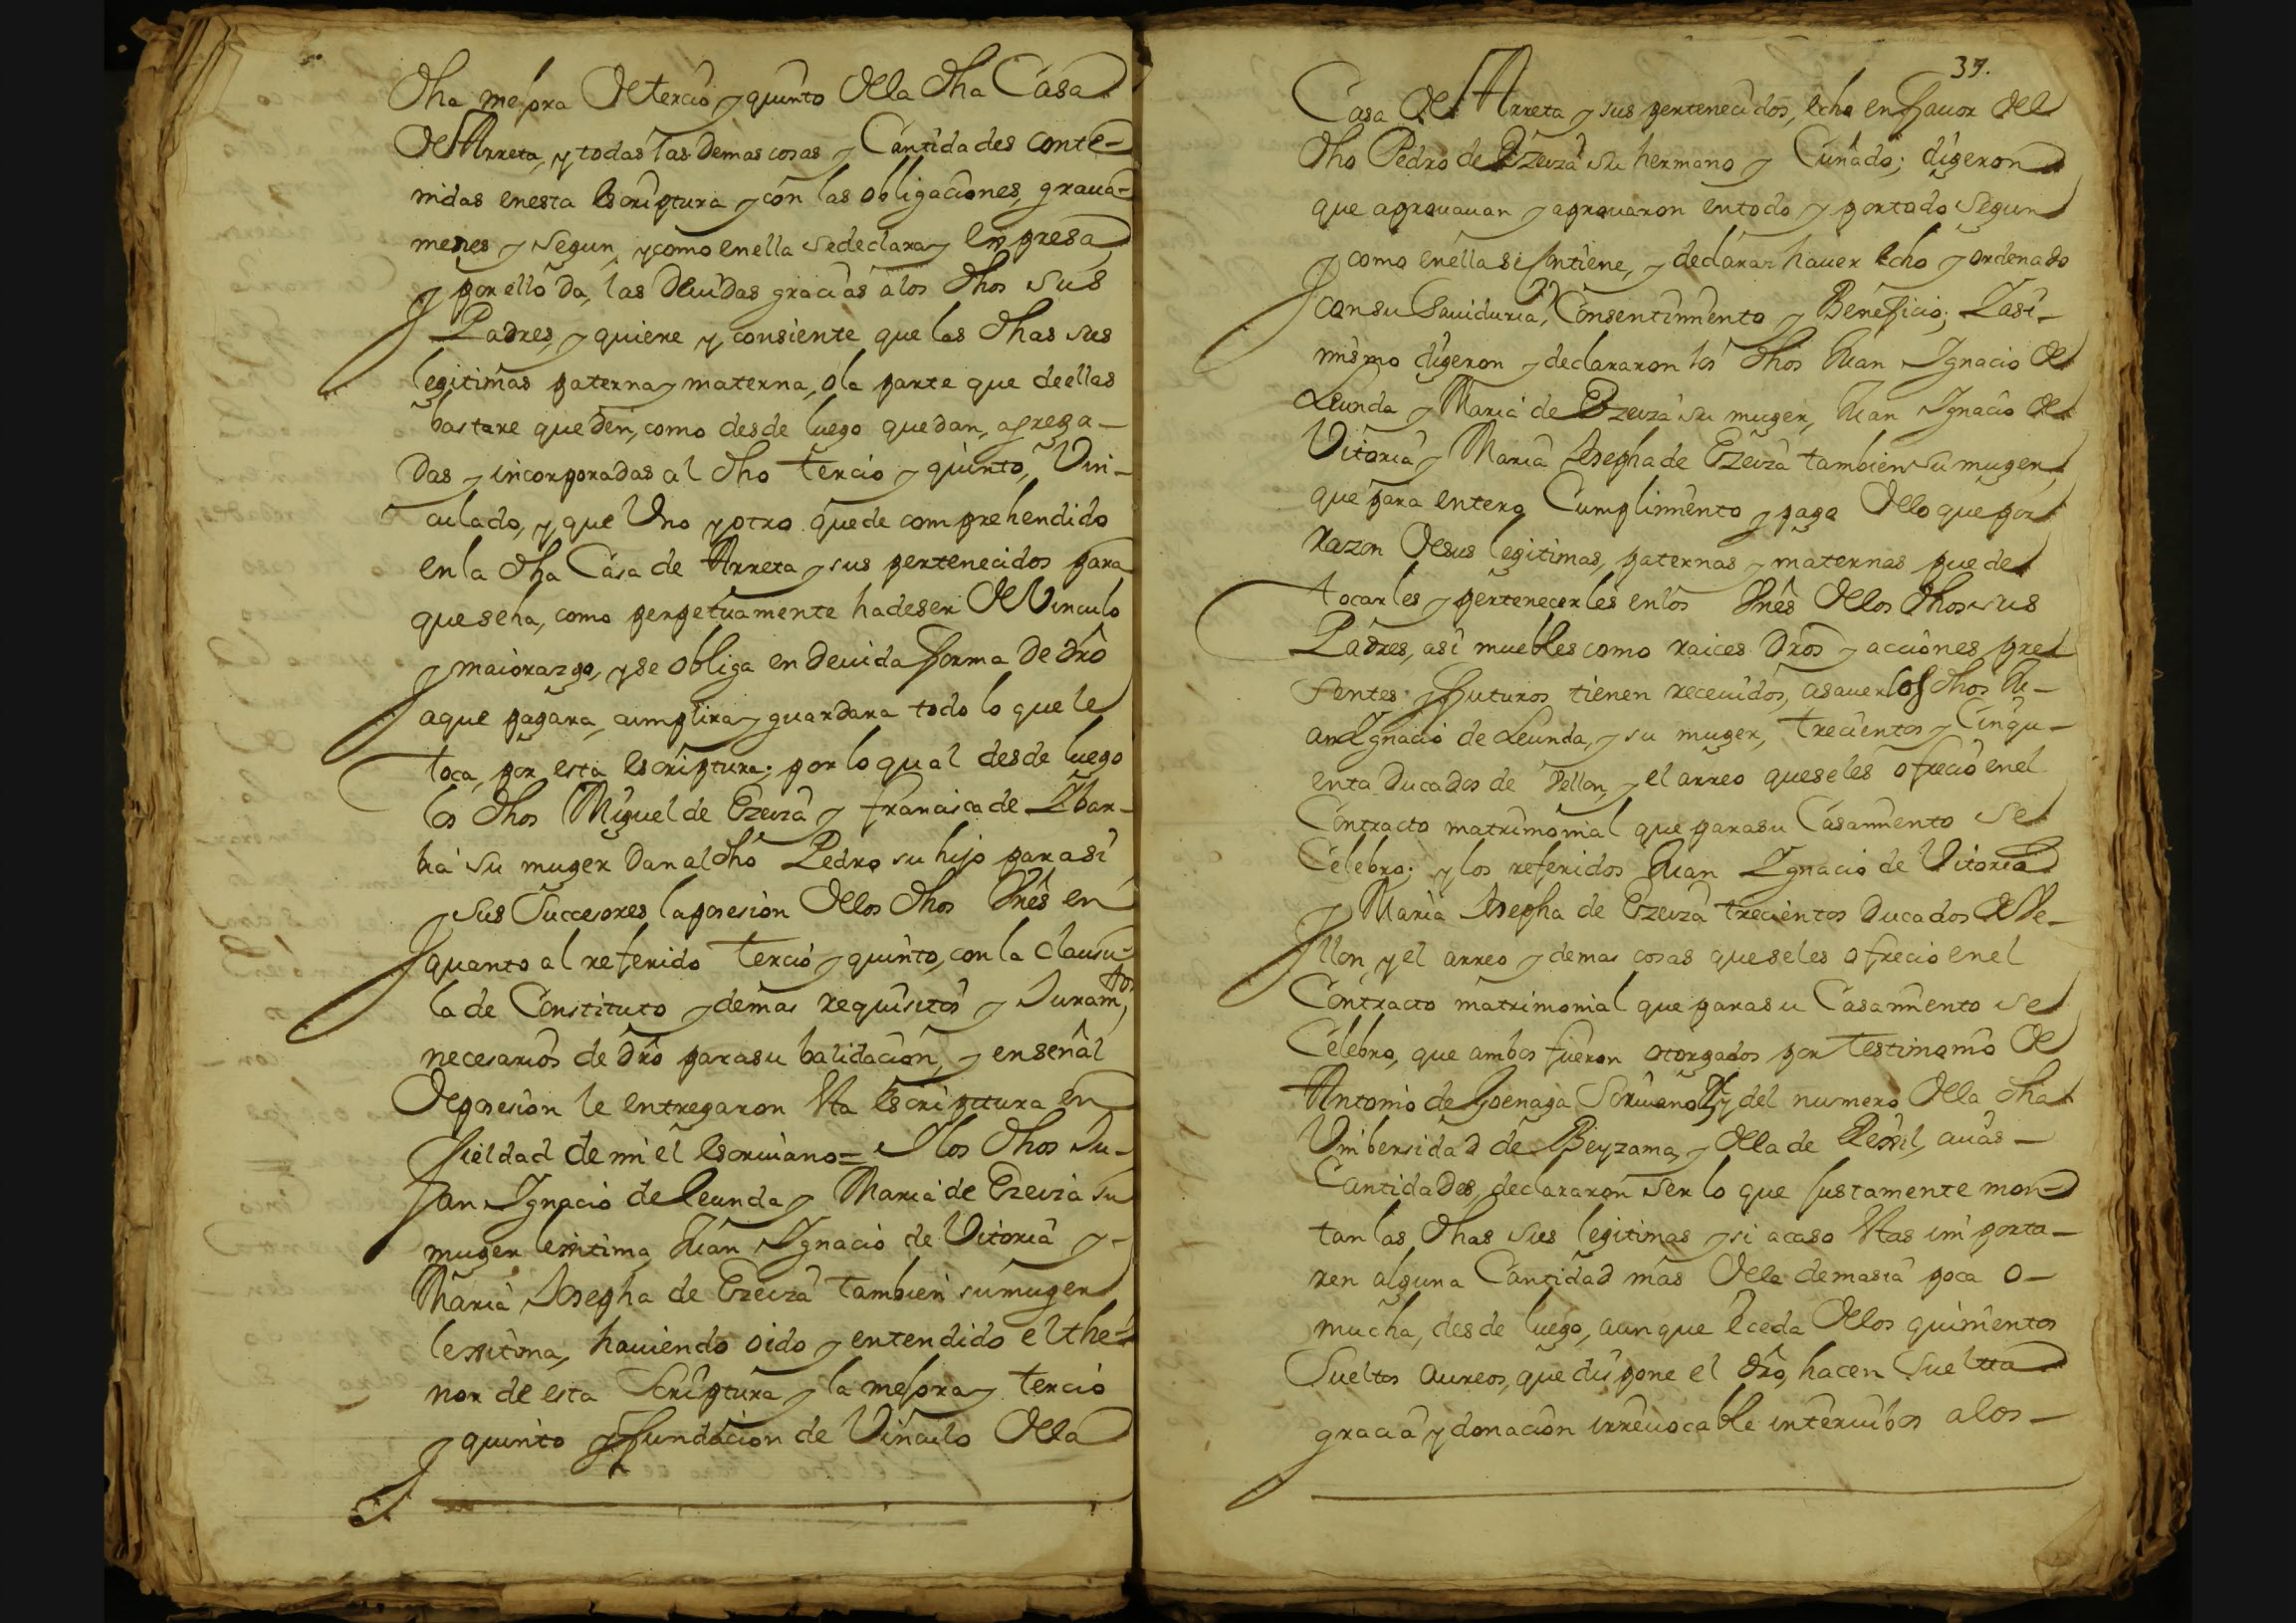 dha mejora de tercio y quinto de la dha Casa
de Arreta, y todas las demas cosas y Cantidades conte-
nidas en esta escriptura y con las obligaciones, grava-
menes y segun, y como en ella se declara y expresa
y por ello da, las devidas gracias a los dhos sus
Padres, y quiere y consiente que las dhas sus
legitimas paterna y materna, o la parte que de ellas
bastare queden, como desde luego quedan, agrega-
das y incorporadas al dho tercio y quinto, Vin-
culado, y que Uno y otro quede comprehendido
en la dha Casa de Arreta y sus pertenecidos para
que seha, como perpetuamente ha de ser de Vinculo
y maiorazgo, y se obliga en devida forma de dro
a que pagara, cumplira y guardara todo lo que le
toca, por esta escriptura; por lo qual desde luego
los dhos Miguel de Ezeiza y francisca de Ybar-
bia su muger dan al dho Pedro su hijo para si
y sus Succesores la posesion de los dhos Vnes en
quanto al referido tercio y quinto, con la clausu-
la de Constituto y demas requisitos y Juramtos,
necesarios de dro para su balidacion, y en señal
de posesion le entregaron esta escripttura en
fieldad de mi el escrivano = Y los dhos Ju-
an Ygnacio de leunda y Maria de Ezeiza su
muger lexitima, Juan Ygnacio de Vitoria y-
Maria Josepha de Ezeiza tambien su muger
lexitima, haviendo oido y entendido el the-
nor de esta Scriptura y la mejora y tercio
y quinto y fundacion de Vinculo de la
39.
Casa de Arreta y sus pertenecidos, echa en favor del
dho Pedro de Ezeiza su hermano y Cuñado; digeron
que aprovavan y aprovaron en todo y por todo segun
y como en ella se contiene, y declaran haver echo y ordenado
con su Saviduria, Consentimiento y Beneficio; Y asi-
mismo digeron y declararon los dhos Juan Ygnacio de
Leunda y Maria de Ezeiza su muger, Juan Ygnacio de
Vitoria y Maria Josepha de Ezeiza tambien su muger,
que para entero Cumplimiento y pago de lo que por
razon de sus legitimas, paternas y maternas puede
tocarles y pertenecerles en los Vnes de los dhos sus
Padres, asi muebles como raices dros y acciones, pre
sentes y futuros tienen recevidos, a saver los dhos Ju-
an Ygnacio de Leunda, y su muger, trecientos y Cinqu-
enta Ducados de Vellon, y el arreo que se les ofrecio en el
Contracto matrimonial que para su Casamiento se
Celebro; y los referidos Juan Ygnacio de Vitoria
y Maria Josepha de Ezeiza trecientos Ducados de Ve-
llon, y el arreo y demas cosas que se les ofrecio en el
Contracto matrimonial que para su Casamiento se
Celebro, que ambos fueron otorgados por testimonio de
Antonio de Goenaga Scrivano Rl y del numero de la dha
Unibersidad de Beyzama, y de la de Rexil, cuias-
Cantidades, declararon ser lo que justamente mon-
tan las dhas sus legitimas y si acaso estas importa-
ren alguna Cantidad mas de la demasia poca o-
mucha, desde luego, aunque eceda de los quinientos
Sueltos aureos, que dispone el dro, hacen sueltta
gracia y donacion irrevocable intervibos a los-